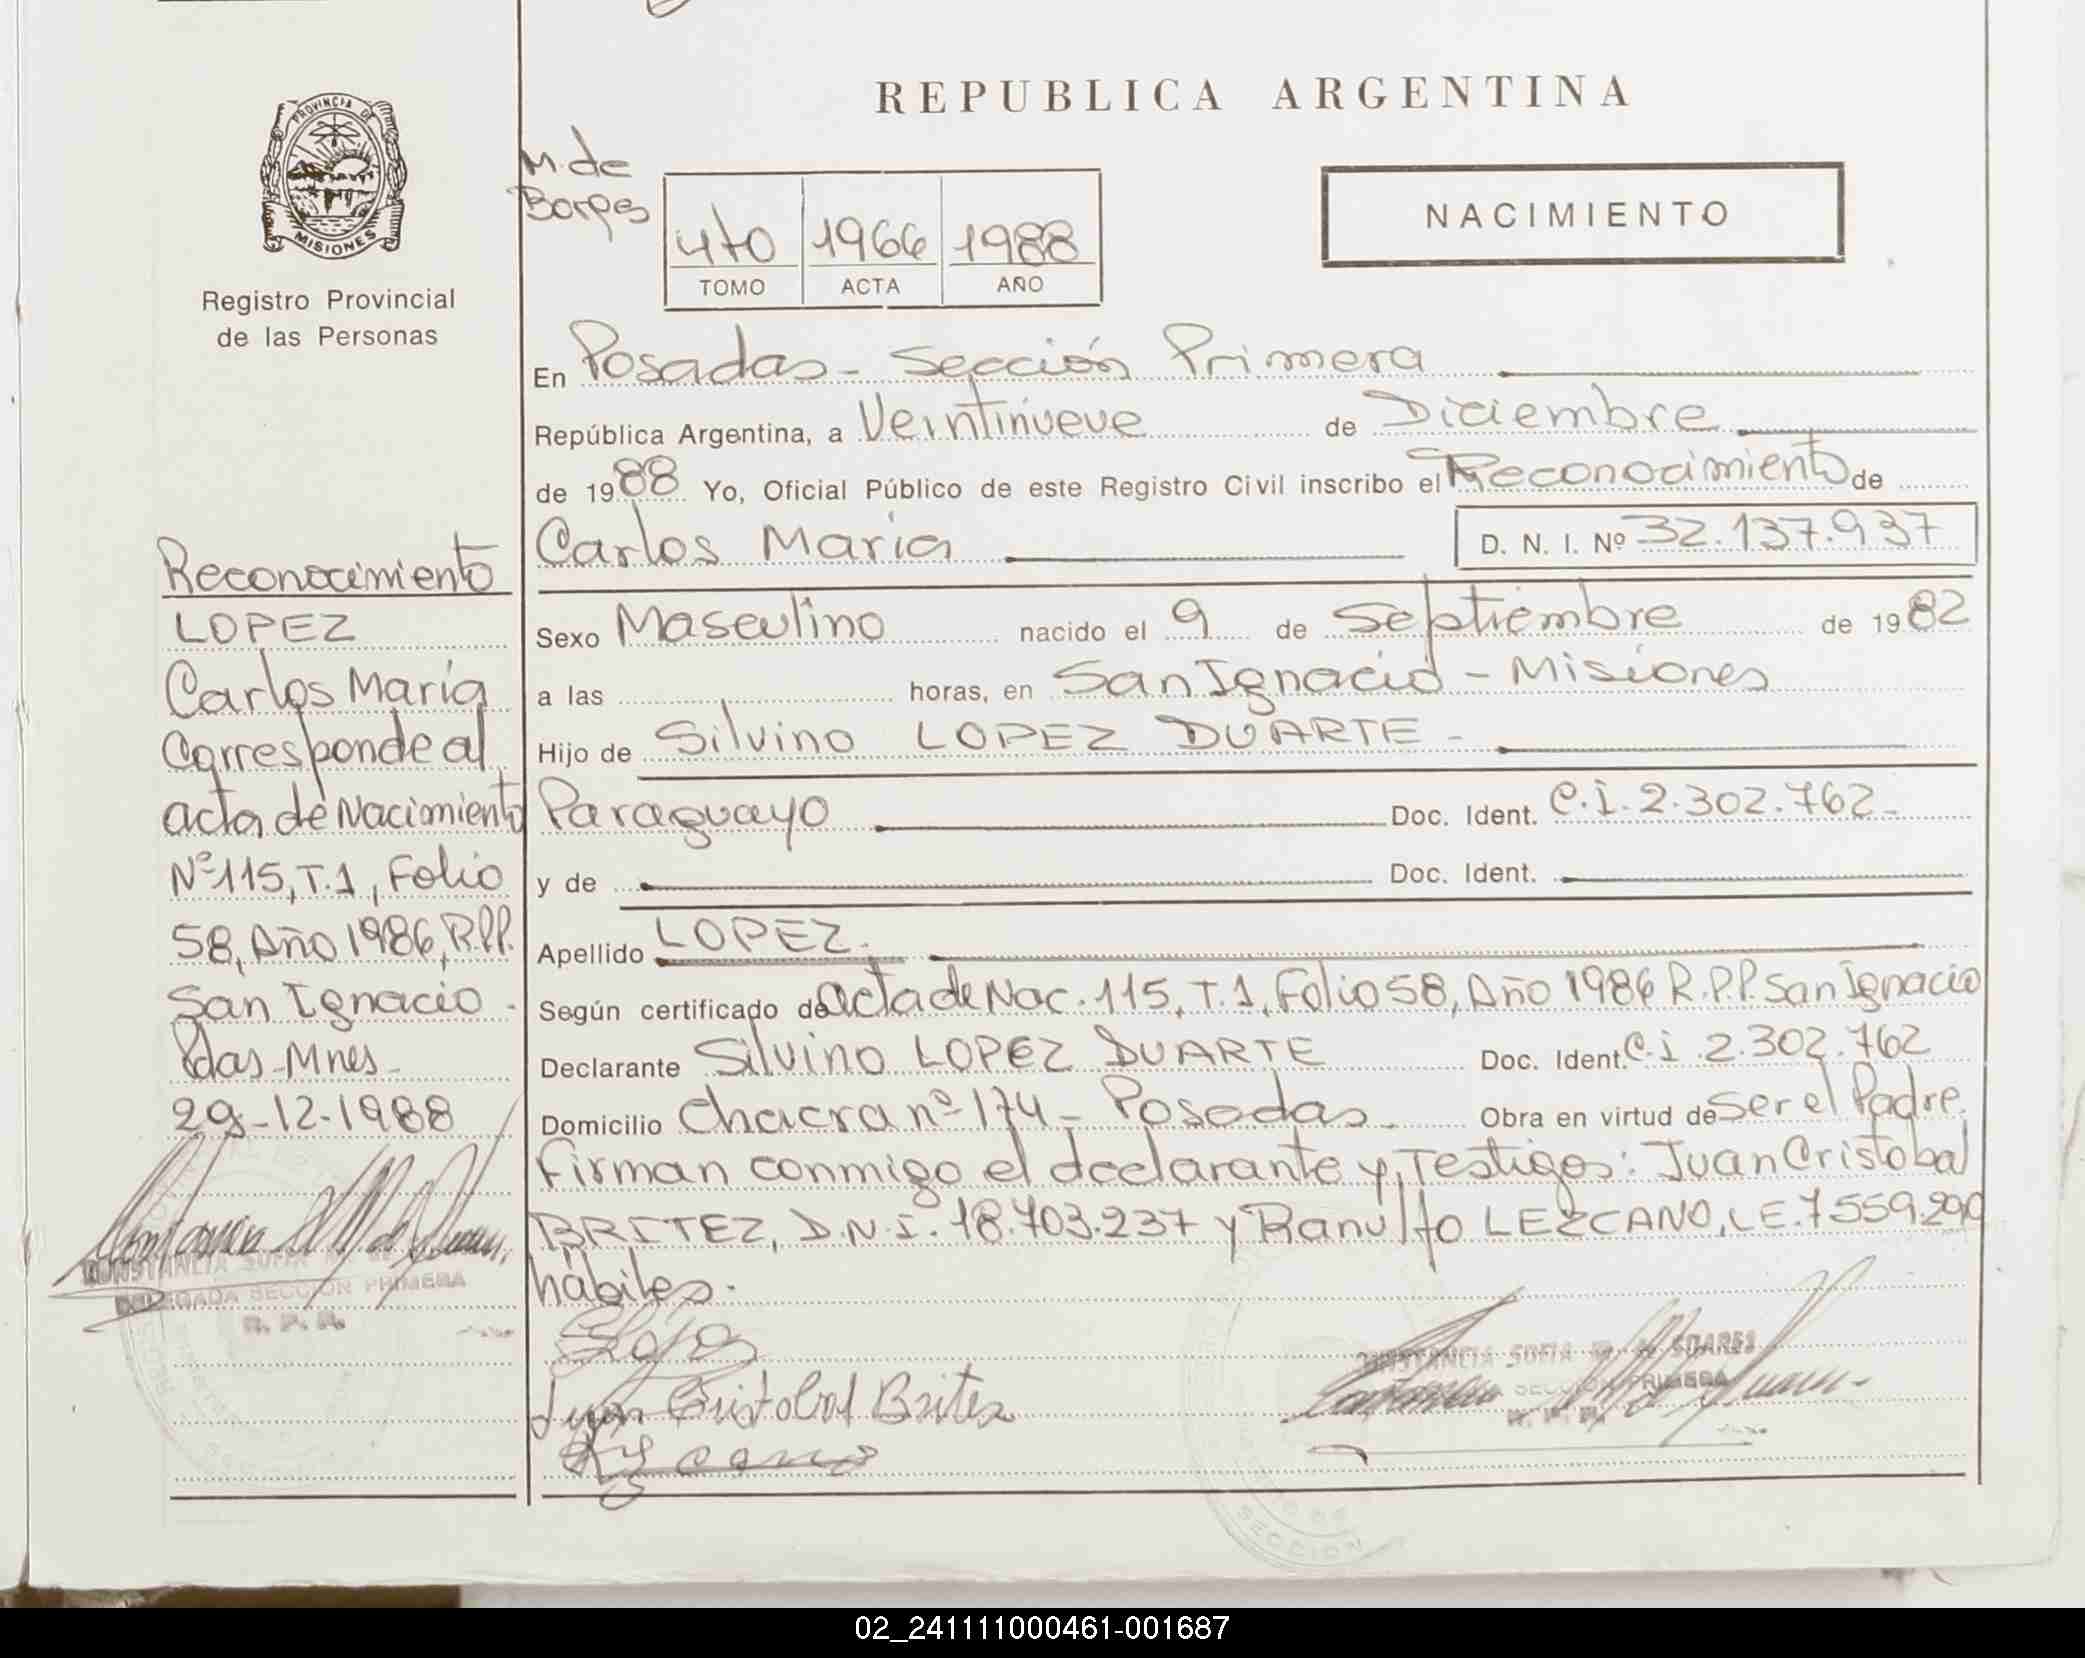 REPUBLICA ARGENTINA
PROVINCIA DE
MISIONES
Registro Provincial
de las Personas
M. de
Borges
470 1966 1988
TOMO ACTA AÑO
NACIMIENTO
En Posadas - Sección Primera
República Argentina, a Veintinueve de Diciembre
de 1988 Yo, Oficial Público de este Registro Civil inscribo el Reconocimiento de
Carlos María D. N. I. Nº 32.137.937
Sexo Masculino nacido el 9 de Septiembre de 1982
a las horas, en San Ignacio - Misiones
Hijo de Silvino LOPEZ DUARTE -
Paraguayo Doc. Ident. C.I. 2.302.762 -
y de Doc. Ident.
Apellido LOPEZ.
Según certificado de acta de Nac. 115, T. 1, Folio 58, Año 1986 R.P.P. San Ignacio
Declarante Silvino LOPEZ DUARTE Doc. Ident. C.I. 2.302.762
Domicilio Chacra nº 174 - Posadas. Obra en virtud de Ser el Padre.
Firman conmigo el declarante y Testigos: Juan Cristobal
BRITEZ, D.N.I. 18.703.237 y Ranulfo LEZCANO, L.E. 7559.290
hábiles.
Juan Cristobal Britez
CONSTANCIA SOFIA M. de SOARES
SECCION PRIMERA
R. P. P.
SECCION
Reconocimiento
LOPEZ
Carlos María
Corresponde al
acta de Nacimiento
Nº 115, T. 1, Folio
58, Año 1986, R.P.P.
San Ignacio -
Pdas - Mnes -
29-12-1988
CONSTANCIA SOFIA
DELEGADA SECCION PRIMERA
R. P. P.
02_241111000461-001687